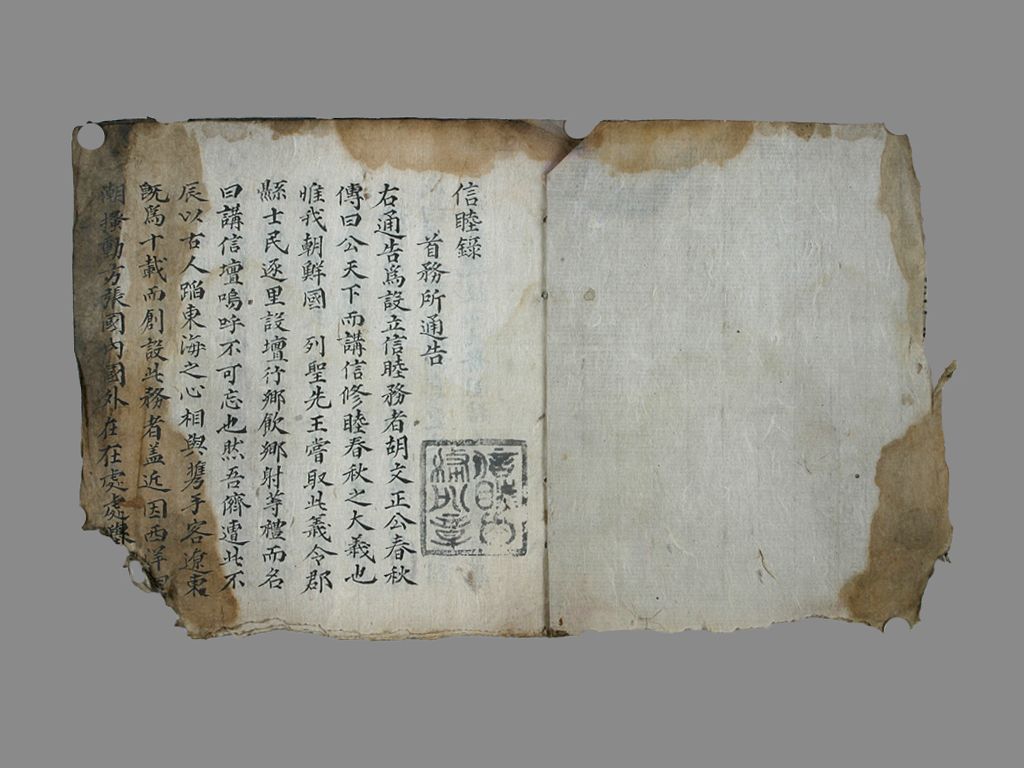 信睦錄
首務所通告
右通告爲設立信睦務者胡文正公春秋
傳曰公天下而講信修睦春秋之大義也
惟我朝鮮國 列聖先王嘗取此義令郡
縣士民逐里設壇行鄉飮鄉射等禮而名
曰講信壇嗚呼不可忘也然吾儕遭此不
辰以古人蹈東海之心相與携手客遼東
旣爲十載而創設此務者盖近因西洋
潮搔動方張國內國外在在處處